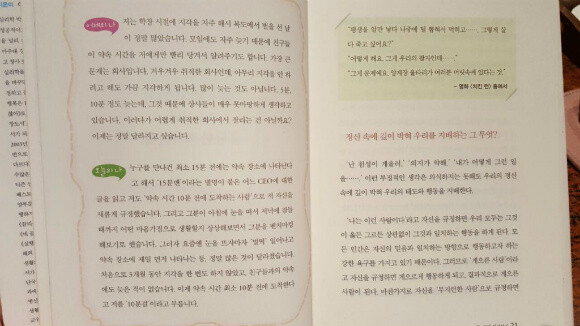 어제의 나
저는 학창 시절에 지각을 자주 해서 복도에서 벌을 선 날
이 정말 많았습니다. 모임에도 자주 늦기 때문에 친구들
이 약속 시간을 저에게만 빨리 당겨서 알려주기도 합니다. 가장 큰
문제는 회사입니다. 겨우겨우 취직한 회사인데, 아무리 지각을 안 하
려고 해도 가끔 지각하게 됩니다. 많이 늦는 것도 아닙니다. 5분,
10분 정도 늦는데, 그것 때문에 상사들이 매우 못마땅하게 생각하고
있습니다. 이러다가 어렵게 취직한 회사에서 잘리는 건 아닐까요?
이제는 정말 달라지고 싶습니다.
오늘의 나
누구를 만나건 최소 15분 전에는 약속 장소에 나타난다
고 해서 '15분맨'이라는 별명이 붙은 어느 CEO에 대한
글을 읽고 저도 '약속 시간 10분 전에 도착하는 사람'으로 저 자신을
새롭게 규정했습니다. 그리고 그분이 아침에 눈을 떠서 저녁에 잠들
때까지 어떤 마음가짐으로 생활할지 상상해보면서 그분을 벤치마킹
해보기로 했습니다. 그러자 요즘엔 눈을 뜨자마자 '벌떡' 일어나고
약속 장소에 제일 먼저 나타나는 등, 정말 많은 것이 달라졌습니다.
처음으로 3개월 동안 지각을 한 번도 하지 않았고, 친구들과의 약속
에도 늦은 적이 없습니다. 이제 약속 시간 최소 10분 전에 도착한다
고 저를 '10분걸'이라고 부릅니다.
그렇게 살
다 죽고 싶어요?"
"어떻게 해요. 그게 우리의 팔자인데……."
"그게 문제예요. 양계장 울타리가 여러분 머릿속에 있다는 것."
– 영화 〈치킨 런〉 중에서
정신 속에 깊이 박혀 우리를 지배하는 그 무엇?
'난 원래 게을러.' '의지가 약해.' '내가 어떻게 그런 일
을…….' 이런 부정적인 생각은 의식하지는 못해도 우리의 정신
속에 깊이 박혀 우리의 태도와 행동을 지배한다.
'나는 이런 사람이다'라고 자신을 규정하면 우리 모두는 그것
이 옳든 그르든 상관없이 그것과 일치하는 행동을 하게 된다. 모
든 인간은 자신의 믿음과 일치하는 방향으로 행동하고자 하는
강한 욕구를 가지고 있기 때문이다. 그러므로 '게으른 사람'이라
고 자신을 규정하면 게으르게 행동하게 되고, 결과적으로 게으른
사람이 된다. 마찬가지로 자신을 '무지한 사람'으로 규정하면
23